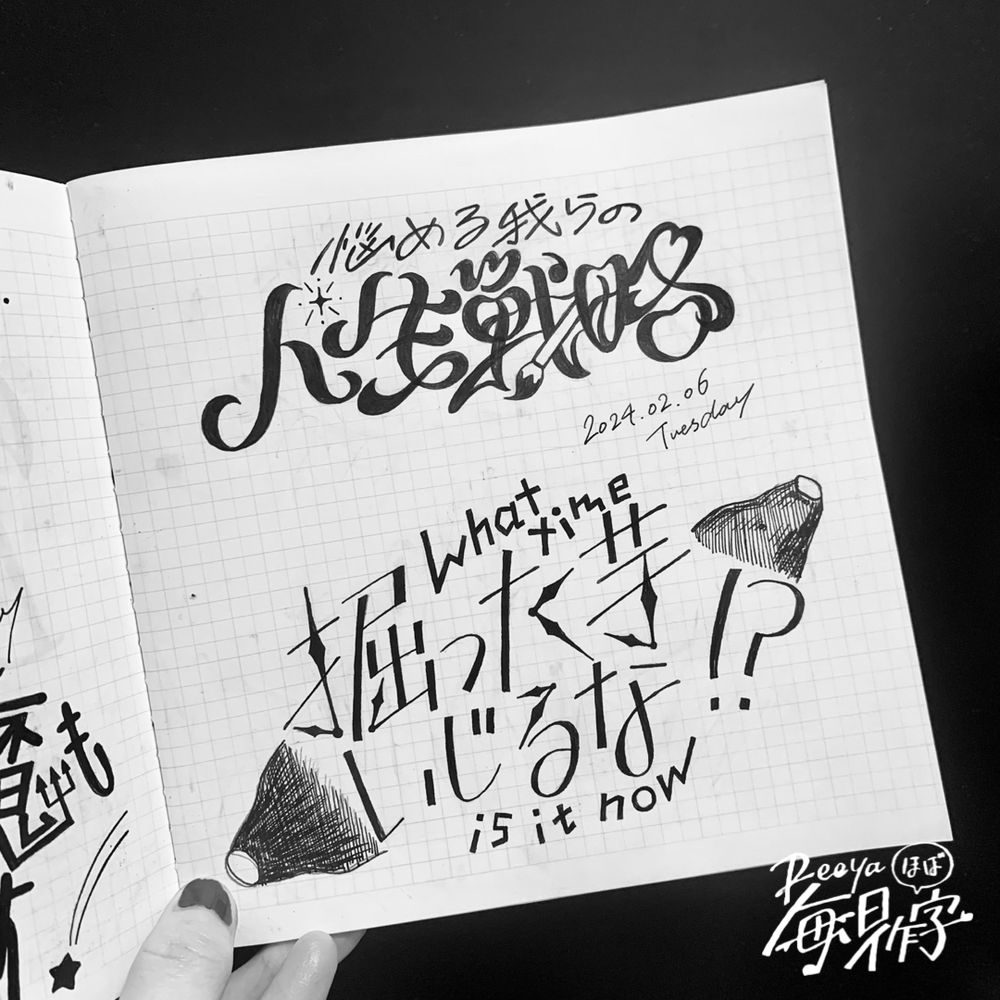 悩める我らの
人生戦略
2024.02.06
Tuesday
What
time
掘った芋
いじるな!?
is it now
も
Reeya ほぼ
毎日作字